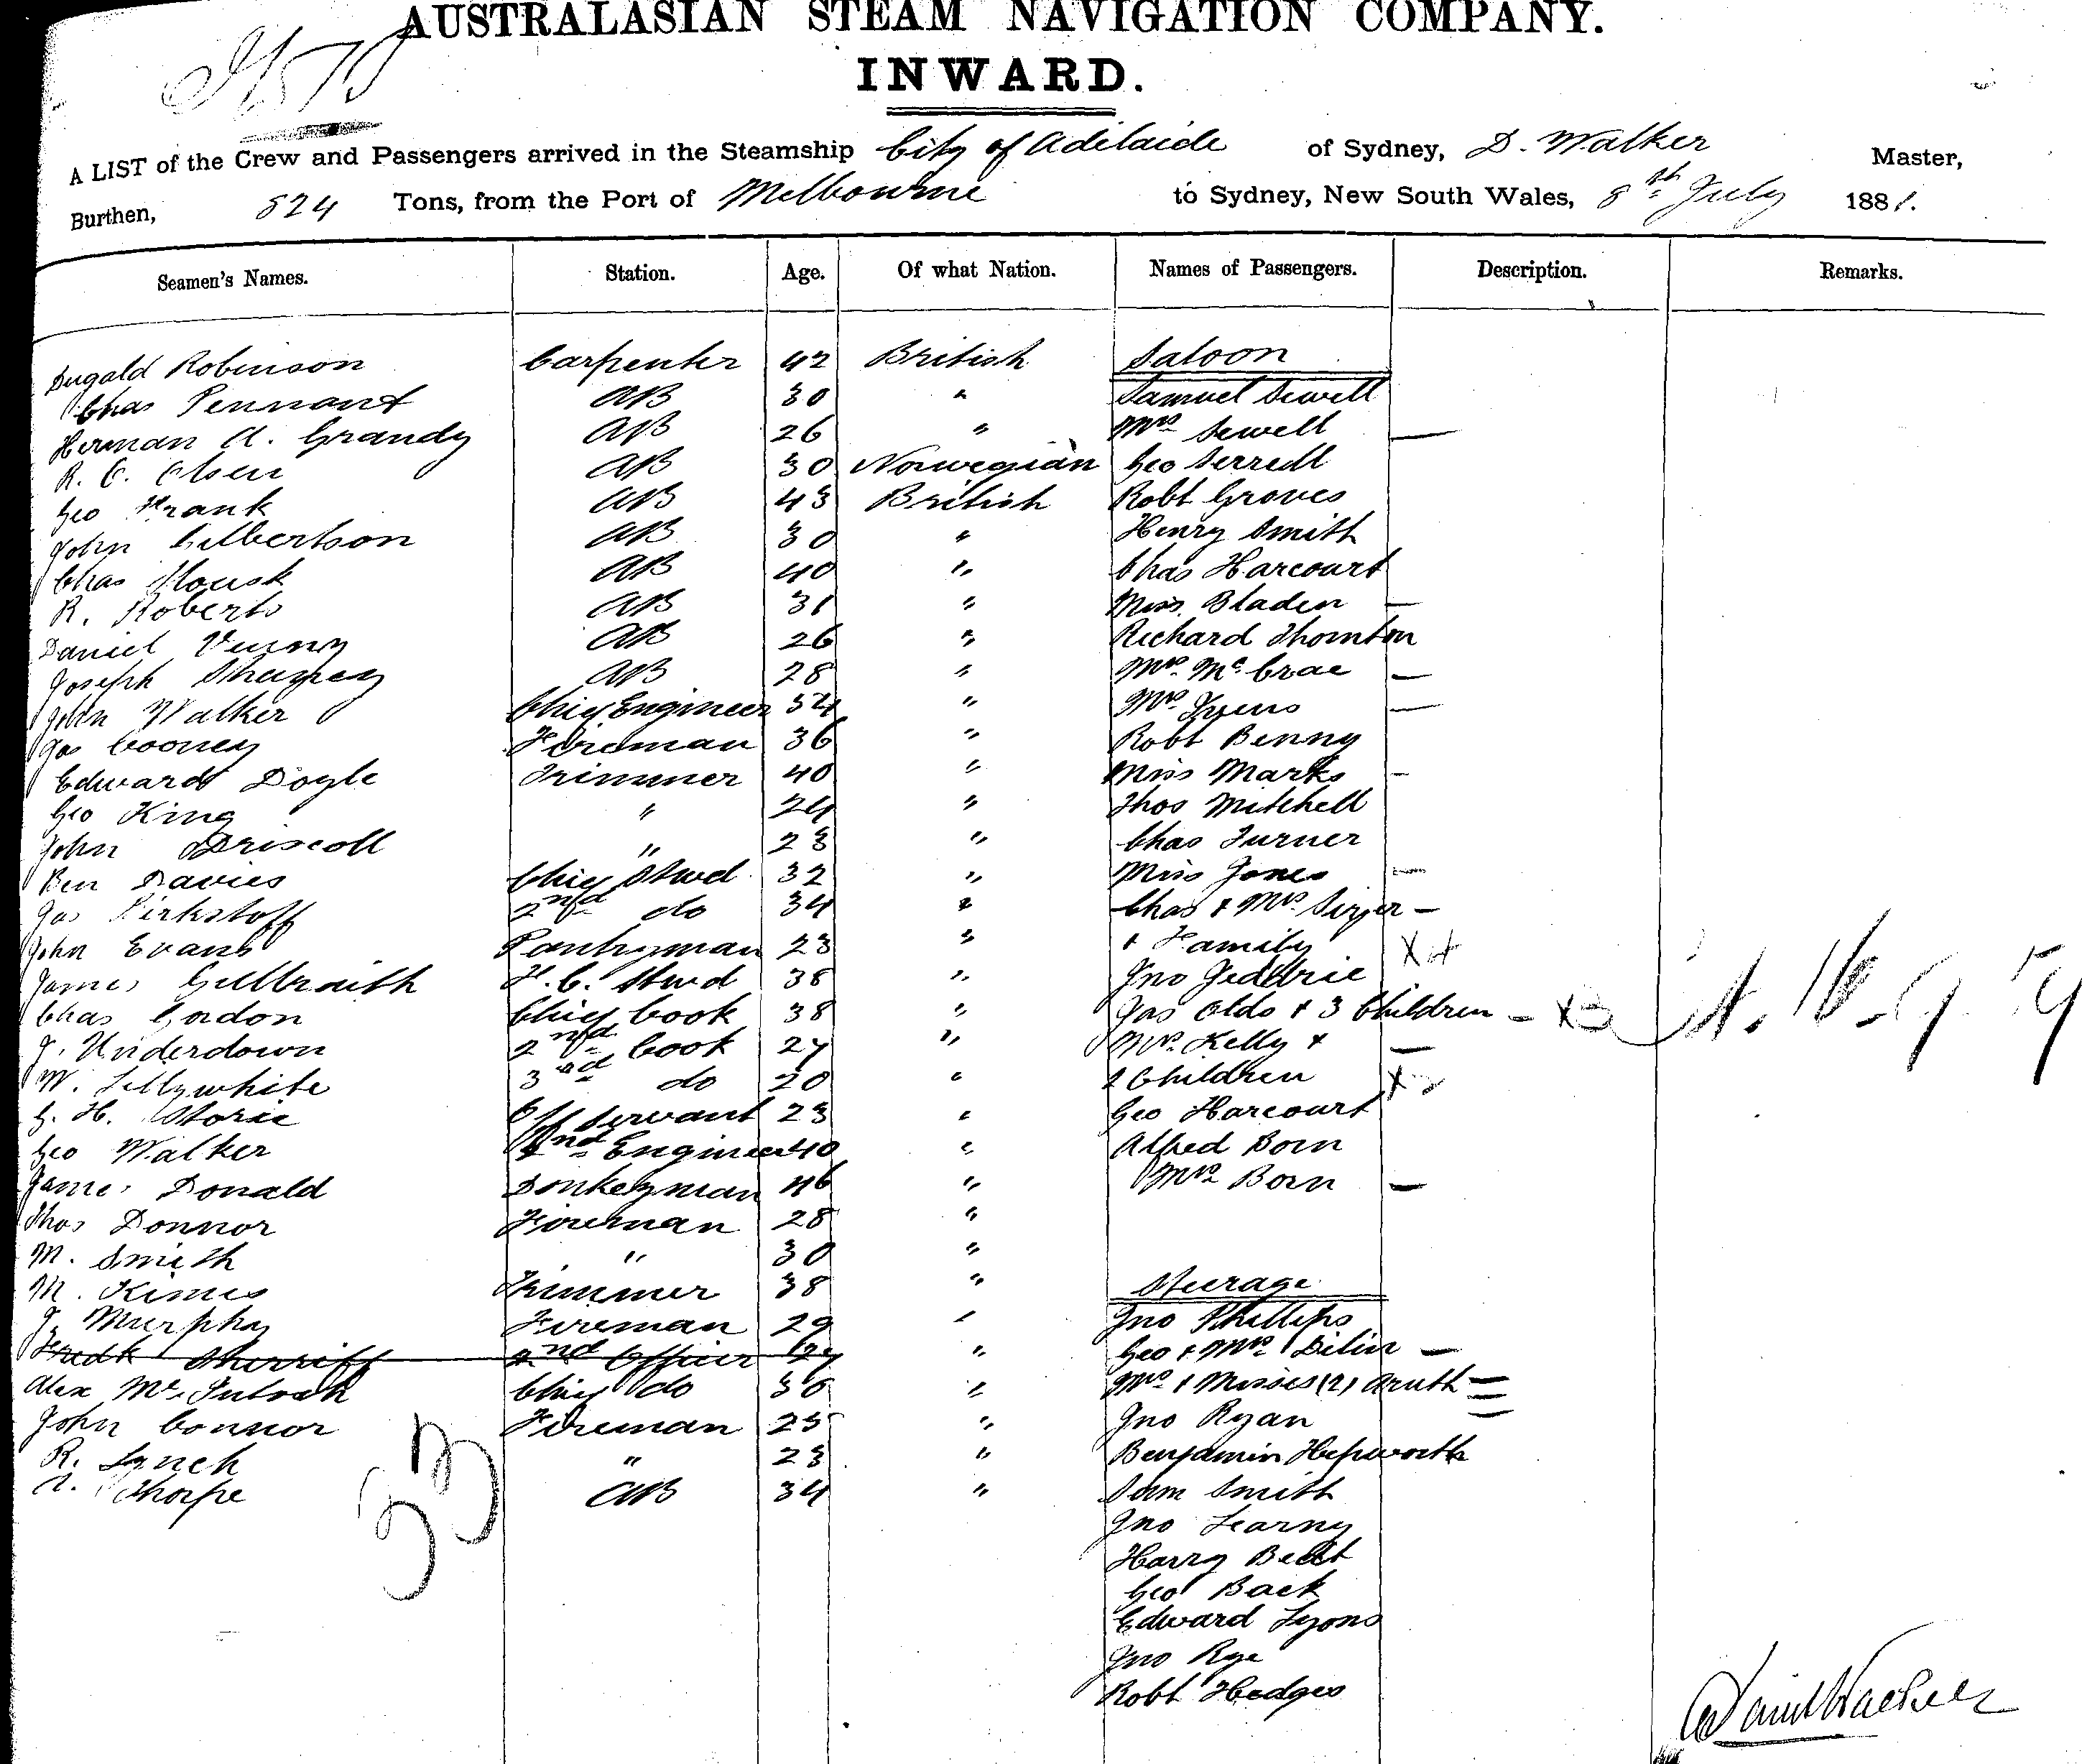 AUSTRALASIAN STEAM NAVIGATION COMPANY.
INWARD.
A LIST of the Crew and Passengers arrived in the Steamship City of Adelaide of Sydney, D. Walker Master,
Burthen, 824 Tons, from the Port of Melbourne to Sydney, New South Wales, 8th July 1881.
Seamen's Names. Station. Age. Of what Nation. Names of Passengers. Description. Remarks.
Dugald Robinson Carpenter 42 British Saloon
Chas Pennant AB 30 " Samuel Sewell
Herman A. Grandy AB 26 " Mrs Sewell —
R. C. Olsen AB 30 Norwegian Geo Serrell
Geo Frank AB 43 British Robt Groves
John Gilbertson AB 30 " Henry Smith
Chas Housk AB 40 " Chas Harcourt
R. Roberts AB 31 " Miss Bladen —
Daniel AB 26 " Richard Thornton
Joseph AB 28 " Mrs McCrae —
John Walker Chief Engineer 52 " Mrs —
Jas Cooney Fireman 36 " Robt Benny
Edward Doyle Trimmer 40 " Miss Marks -
Geo King " 24 " Thos Mitchell
John Driscoll " 23 " Chas Turner
Ben Davies Chief Stwd 32 " Miss Jones —
Jas Kirkstoff 2nd do 34 " Chas & Mrs —
John Evans Pantryman 23 " & Family
James Gilbraith F.C. Stwd 38 " Jno Geddrie
Chas Gordon Chief Cook 38 " Jas Olds & 3 Children — x3
J. Underdown 2nd Cook 27 " Mrs Kelly & —
W. Lillywhite 3rd do 20 " 2 Children x2
G. H. Storie Off Servant 23 " Geo Harcourt
Geo Walker 2nd Engineer 40 " Alfred Born
James Donald Donkeyman 46 " Mrs Born —
Thos Donnor Fireman 28 "
M. Smith " 30 "
M. Kimes Trimmer 38 " Steerage
J. Murphy Fireman 29 " Jno Phillips
Fredk Sherriff 2nd Officer 27 " Geo & Mrs Dilin —
Alex McIntosh Chief do 36 " Mrs & Misses (2) Aruth
John Connor Fireman 25 " Jno Ryan
R. Lynch " 23 " Benjamin Hepworth
A. Thorpe AB 34 " Sam Smith
33
Jno Fearny
Harry Belt
Geo Back
Edward Lyons
Jno Rye
Robt Hedges